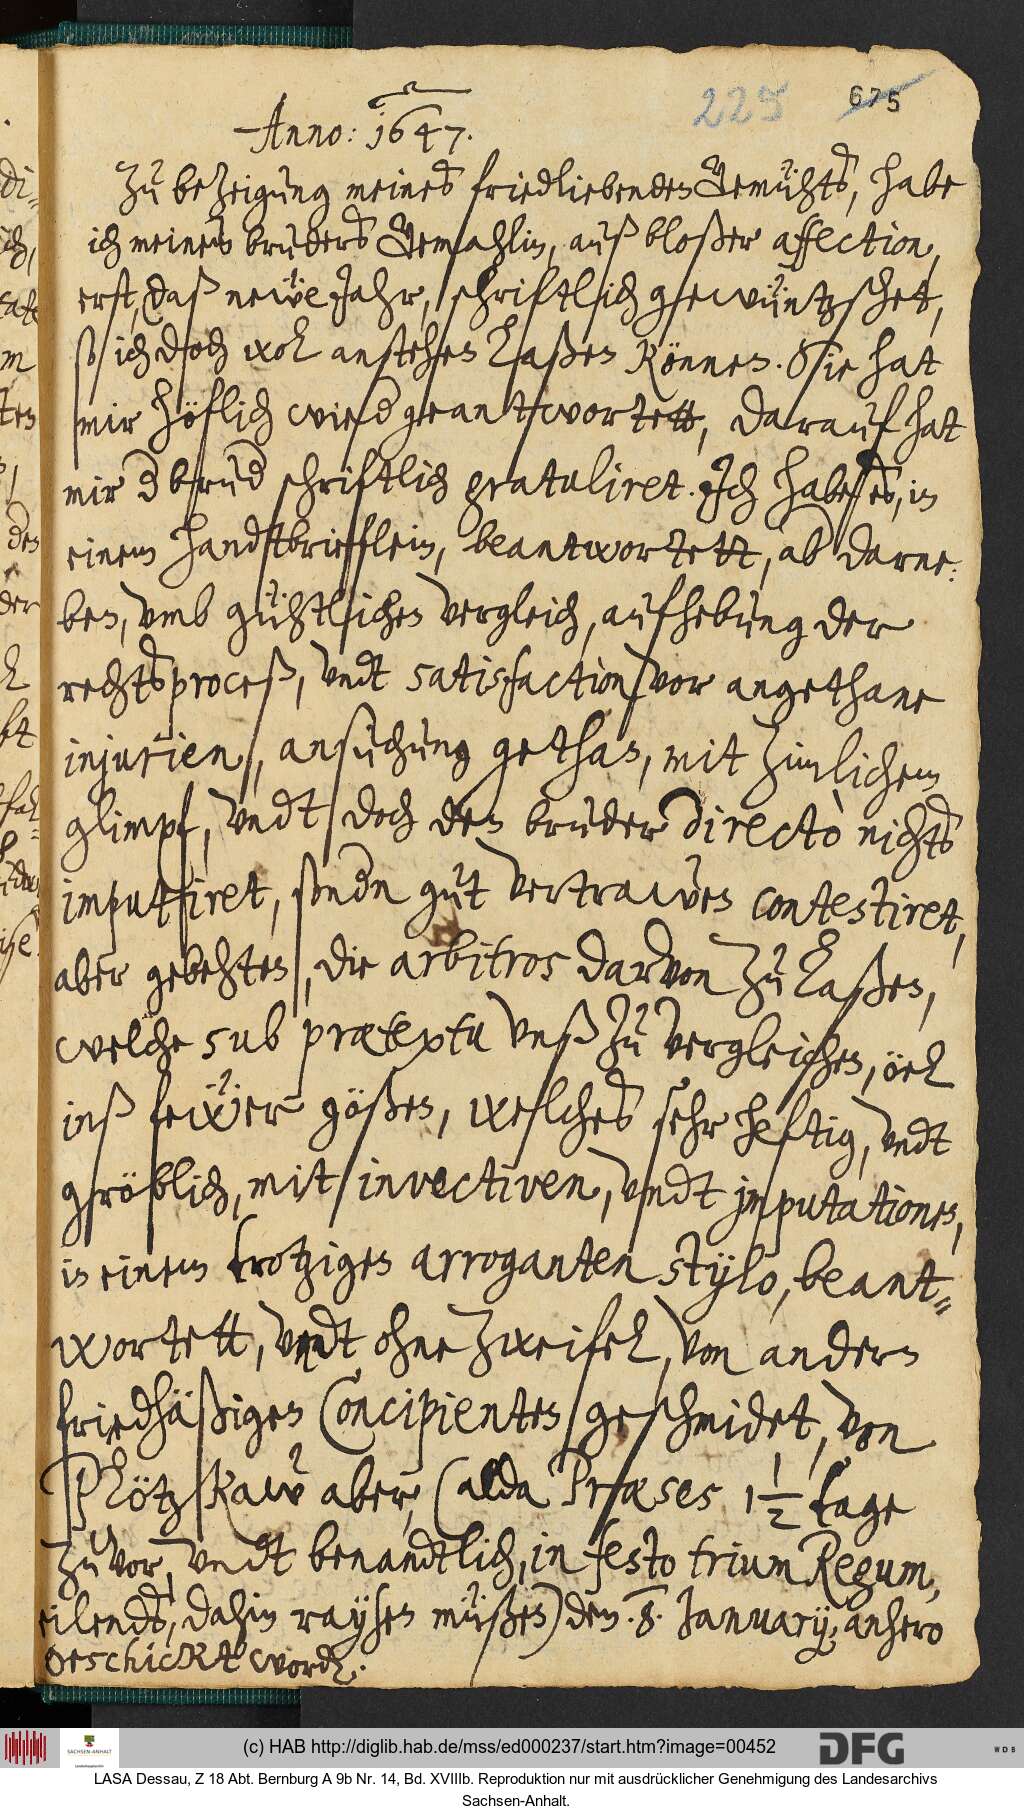 225
675
Anno: 1647.
Zu bezeigung meines friedliebenden Gemühts, habe
ich meines bruders Gemahlin, auß bloßer affection,
erst, daß newe Jahr, schriftlich gewüntzschet,
so ich doch wol anstehen laßen können. Sie hat
mir höflich wied geantwortett, darauf hat
mir d brud schriftlich gratuliret. Ich habe es, in
einem handtbriefflein, beantwortett, ab darne:
ben, vmb gühtlichen vergleich, aufhebung der
rechtsproceß, vndt satisfaction vor angethane
injurien, ansuchung gethan, mit zimlichem
glimpf, vndt doch den bruder directò nichts
imputiret, sondn gut vertrawen contestiret,
aber gebehten, die arbitros darvon zu laßen,
welche sub prætextu vnß zu vergleichen, öel
inß fewer gößen, welches sehr heftig, vndt
gröblich, mit invectiven, vndt imputationen,
in einem trotzigen arroganten stylo, beant-
wortett, vndt ohne zweifel, von andern
friedhäßigen Concipienten geschmidet, von
Plötzkaw aber, (alda Præses 1½ tage
zuvor, vndt benandtlich, in festo trium Regum,
eilends, dahin raysen müßen) den .8. January, anhero
geschickt word.
(c) HAB http://diglib.hab.de/mss/ed000237/start.htm?image=00452
SACHSEN-ANHALT
DFG
WDB
LASA Dessau, Z 18 Abt. Bernburg A 9b Nr. 14, Bd. XVIIIb. Reproduktion nur mit ausdrücklicher Genehmigung des Landesarchivs
Sachsen-Anhalt.